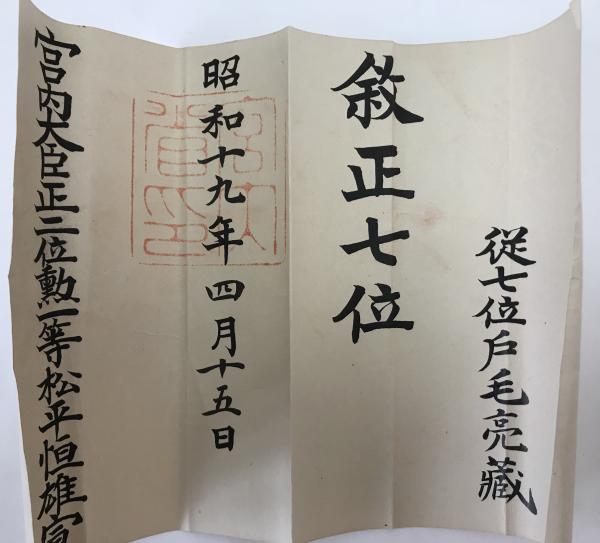 從七位戶毛亮藏
敘正七位
昭和十九年四月十五日
宮内大臣正二位勲一等松平恒雄宣
宮内省印